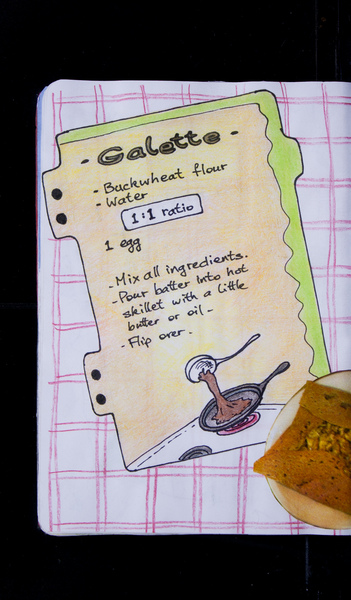 - Galette -
- Buckwheat flour
- Water
1:1 ratio
1 egg
- Mix all ingredients.
- Pour batter into hot
skillet with a little
butter or oil -
- Flip over.